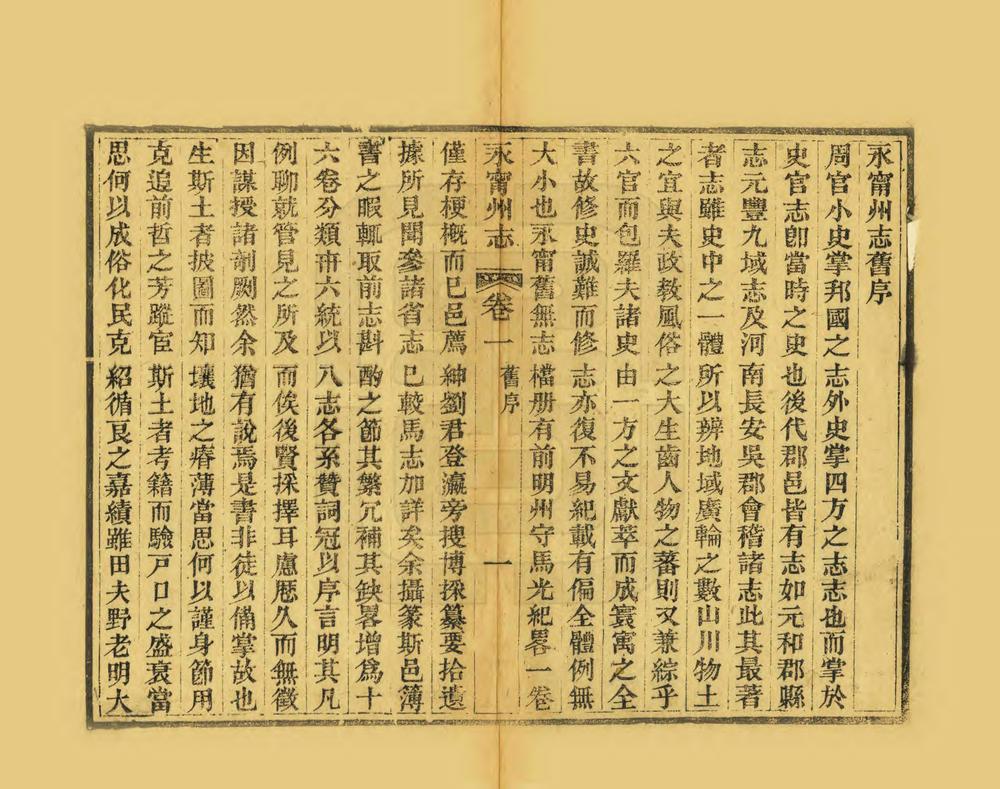 永甯州志舊序
周官小史掌邦國之志外史掌四方之志志也而掌於
史官志卽當時之史也後代郡邑皆有志如元和郡縣
志元豐九域志及河南長安吳郡會稽諸志此其最著
者志雖史中之一體所以辨地域廣輪之數山川物土
之宜與夫政教風俗之大生齒人物之蕃則又兼綜乎
六官而包羅夫諸史由一方之文獻萃而成寰寓之全
書故修史誠難而修志亦復不易紀載有偏全體例無
大小也永甯舊無志檔册有前明州守馬光紀畧一卷
永甯州志
卷一
舊序
一
僅存梗概而已邑薦紳劉君登瀛旁搜博採纂要拾遺
據所見聞參諸省志已較馬志加詳矣余攝篆斯邑簿
書之暇輒取前志斟酌之節其繁冗補其缺畧增爲十
六卷分類冊六統以八志各系贊詞冠以序言明其凡
例聊就管見之所及而俟後賢採擇耳慮厯久而無徵
因謀授諸剞劂然余猶有說焉是書非徒以備掌故也
生斯土者披圖而知壤地之瘠薄當思何以謹身節用
克追前哲之芳蹤宦斯土者考籍而驗戸口之盛衰當
思何以成俗化民克紹循良之嘉績雖田夫野老明大